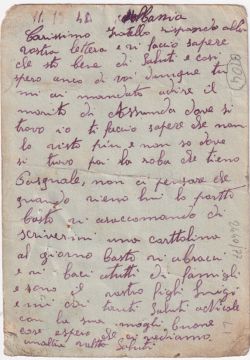 11 19 41 Albania
Carissimo fratello rispondo alla
vostra lettera e vi faccio sapere
che sto bene di saluti e così
spero anco di voi dunque tu
mi ai mandato adire il
marito di Assunda dove si
trova io ti faccio sapere che non
lo visto più e non so dove
si trova poi la roba che tieno
Pasquale, non ci pensare che
quando vieno lui lo porto
basto vi araccomando di
scriverni una carttolina
al giorno basto vi abracci
e vi baci atutti di famigli
e sono il vostro figli
e mio cari tanti saluti
con la sua mogli buone
cose espero che ci vediamo
unaltra volta Saluti